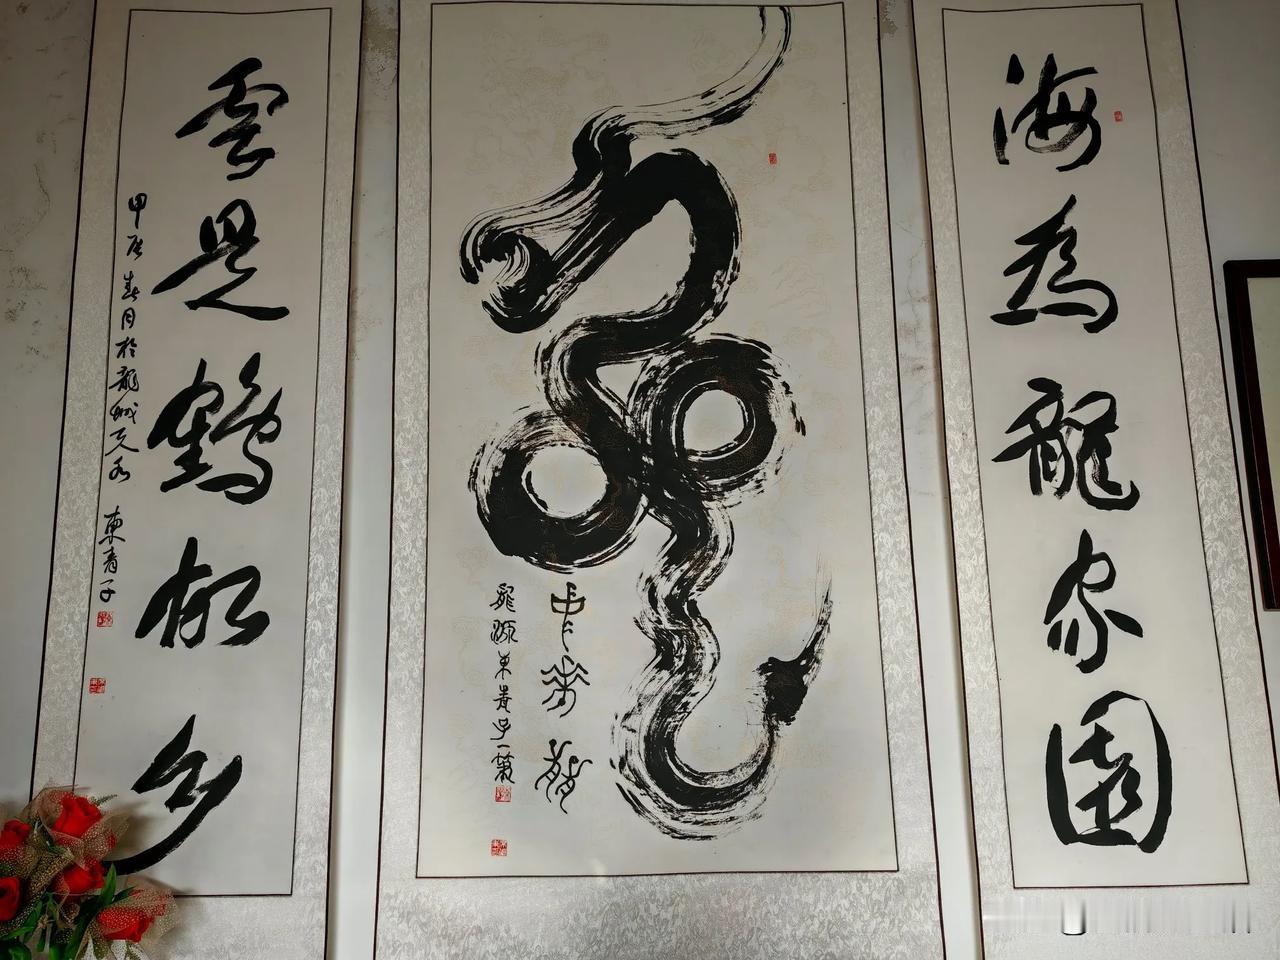 海为龍家園
雲是鶴故乡
甲辰春月於龍城天水 東青子
中華龍
龍源東青子一筆